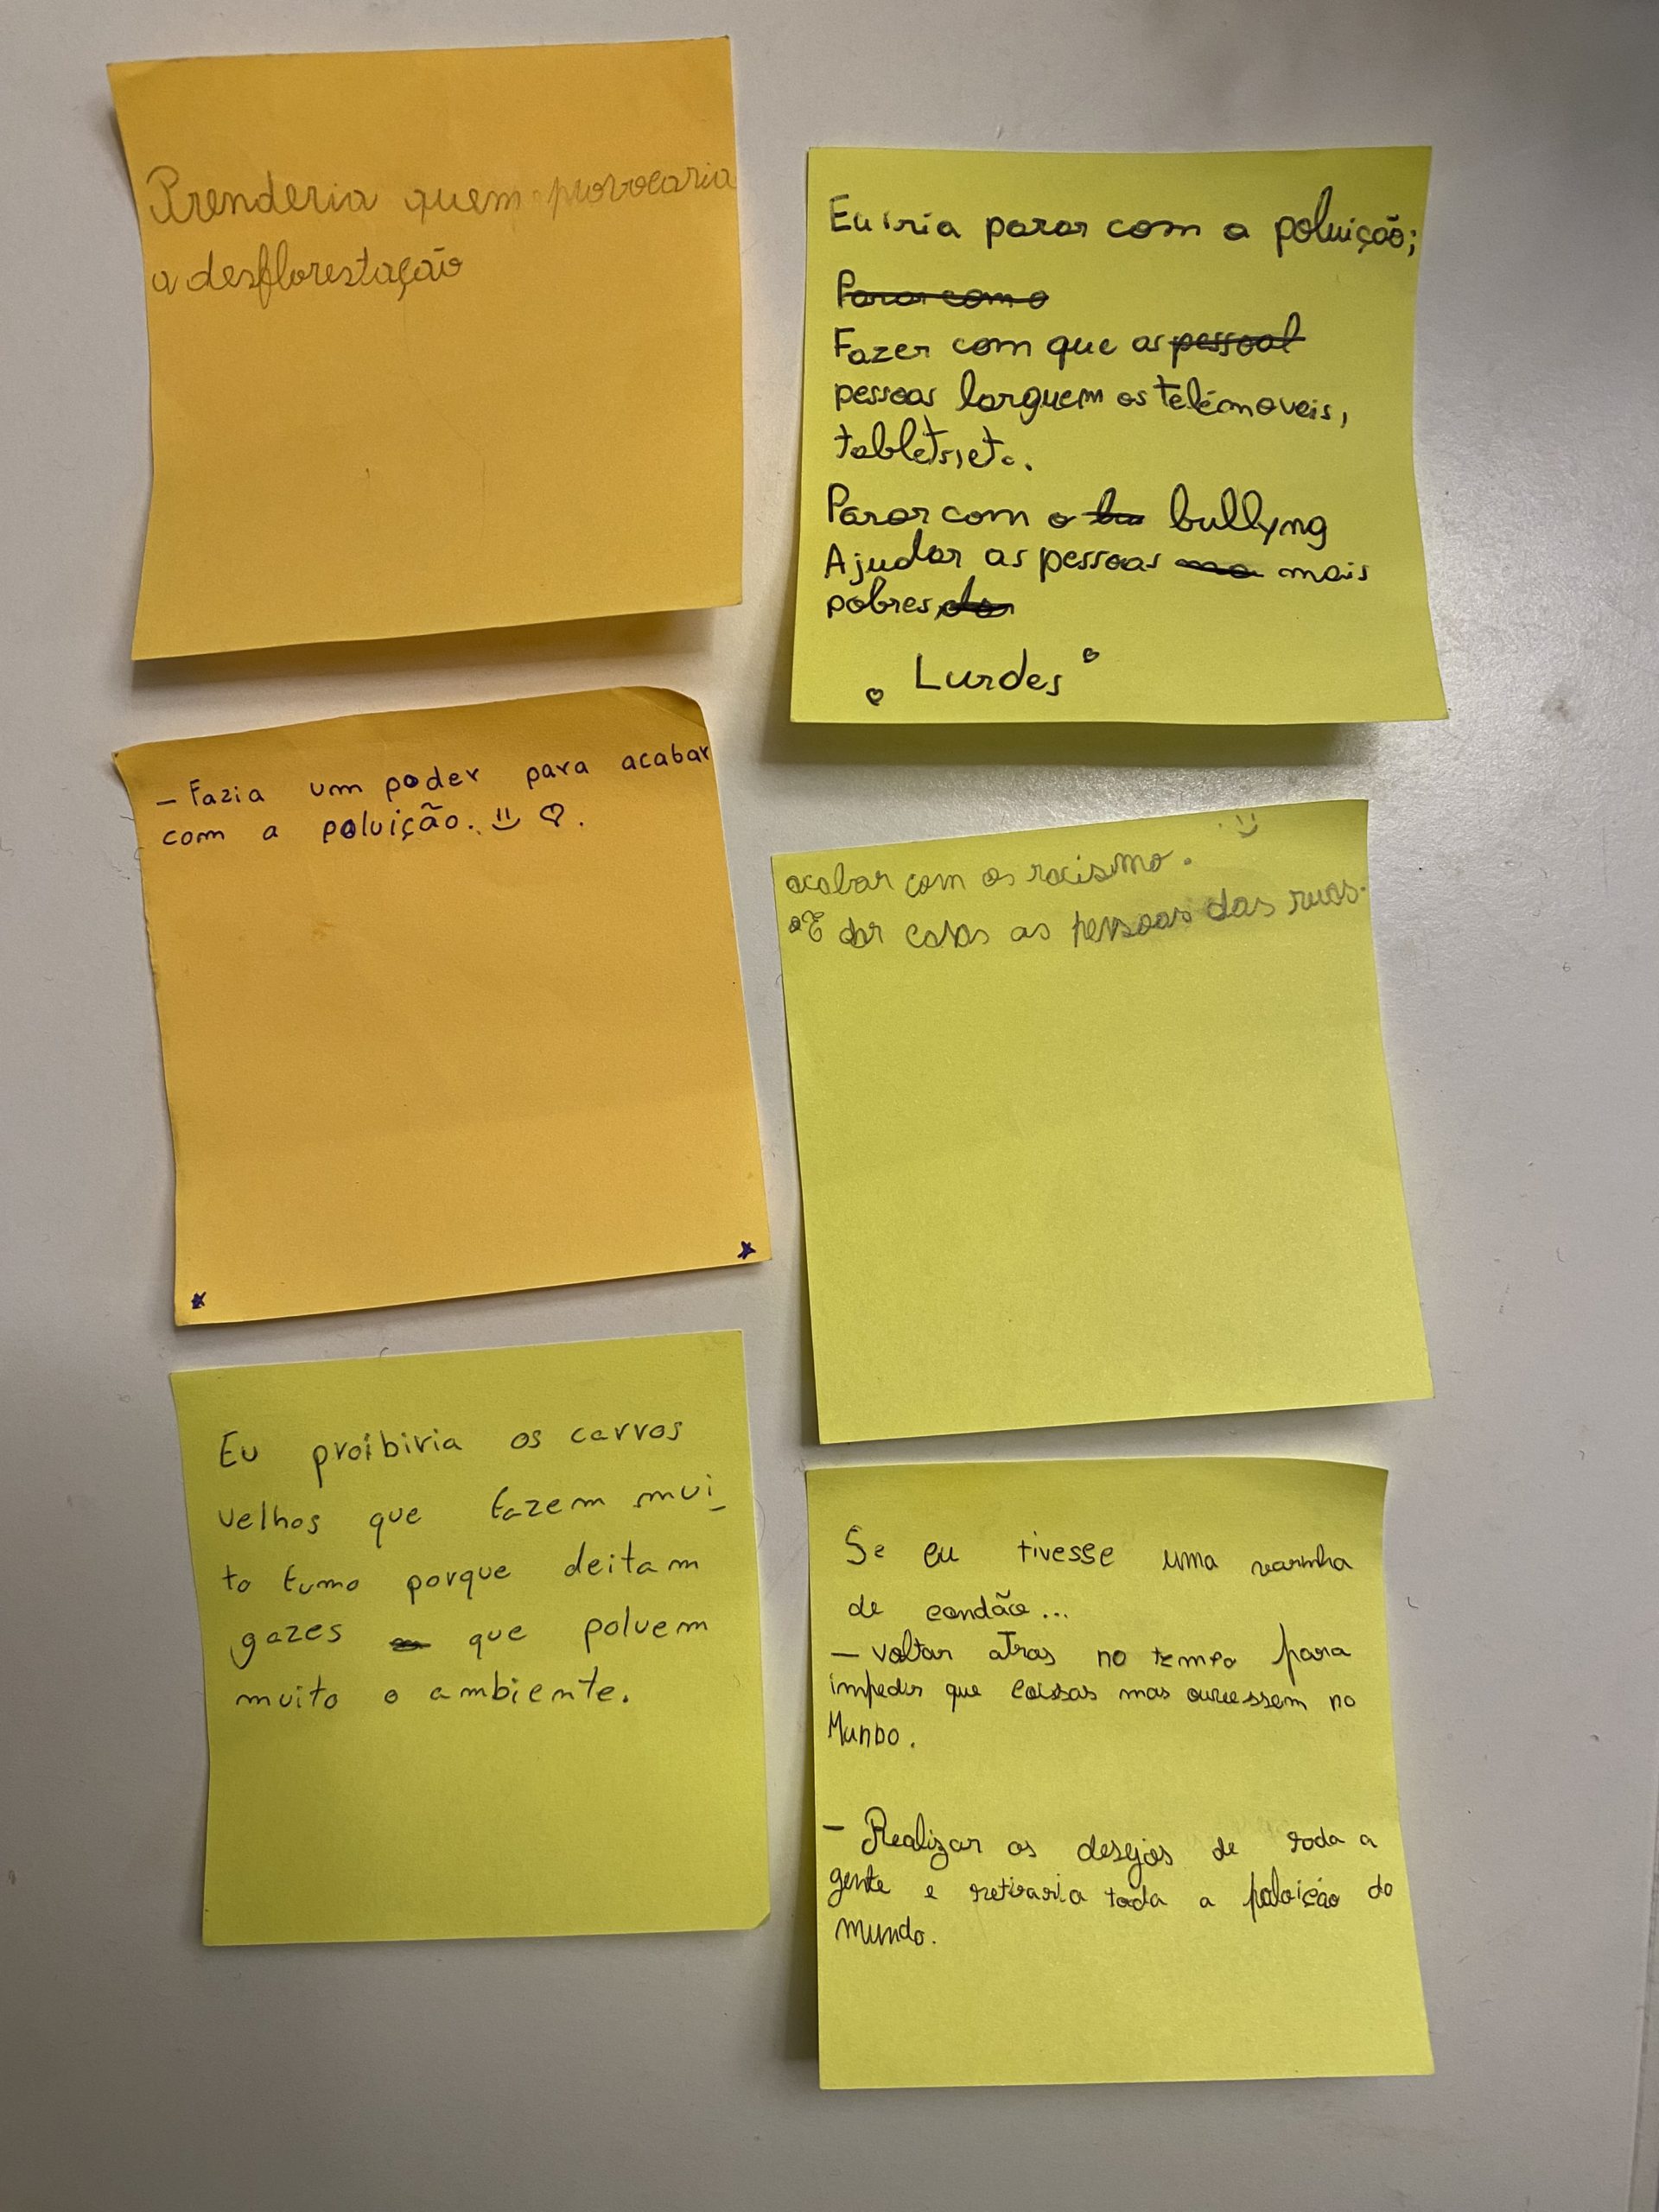 Prenderia quem provocaria
a desflorestação
Eu iria parar com a poluição;
Parar com o
Fazer com que as pessoal
pessoas larguem os telémoveis,
tablets,etc.
Parar com o bu bullyng
Ajudar as pessoas mais
pobres da
Lurdes
- Fazia um poder para acabar
com a poluição.
acabar com os racismo.
E dar casas as pessoas das ruas.
Eu proíbiria os carros
velhos que fazem mui_
to fumo porque deitam
gazes que poluem
muito o ambiente.
Se eu tivesse uma varinha
de condão...
- Voltar atras no tempo para
impedir que coisas mas ouressem no
Mundo.
- Realizar os desejos de toda a
gente e retiraria toda a poloição do
mundo.